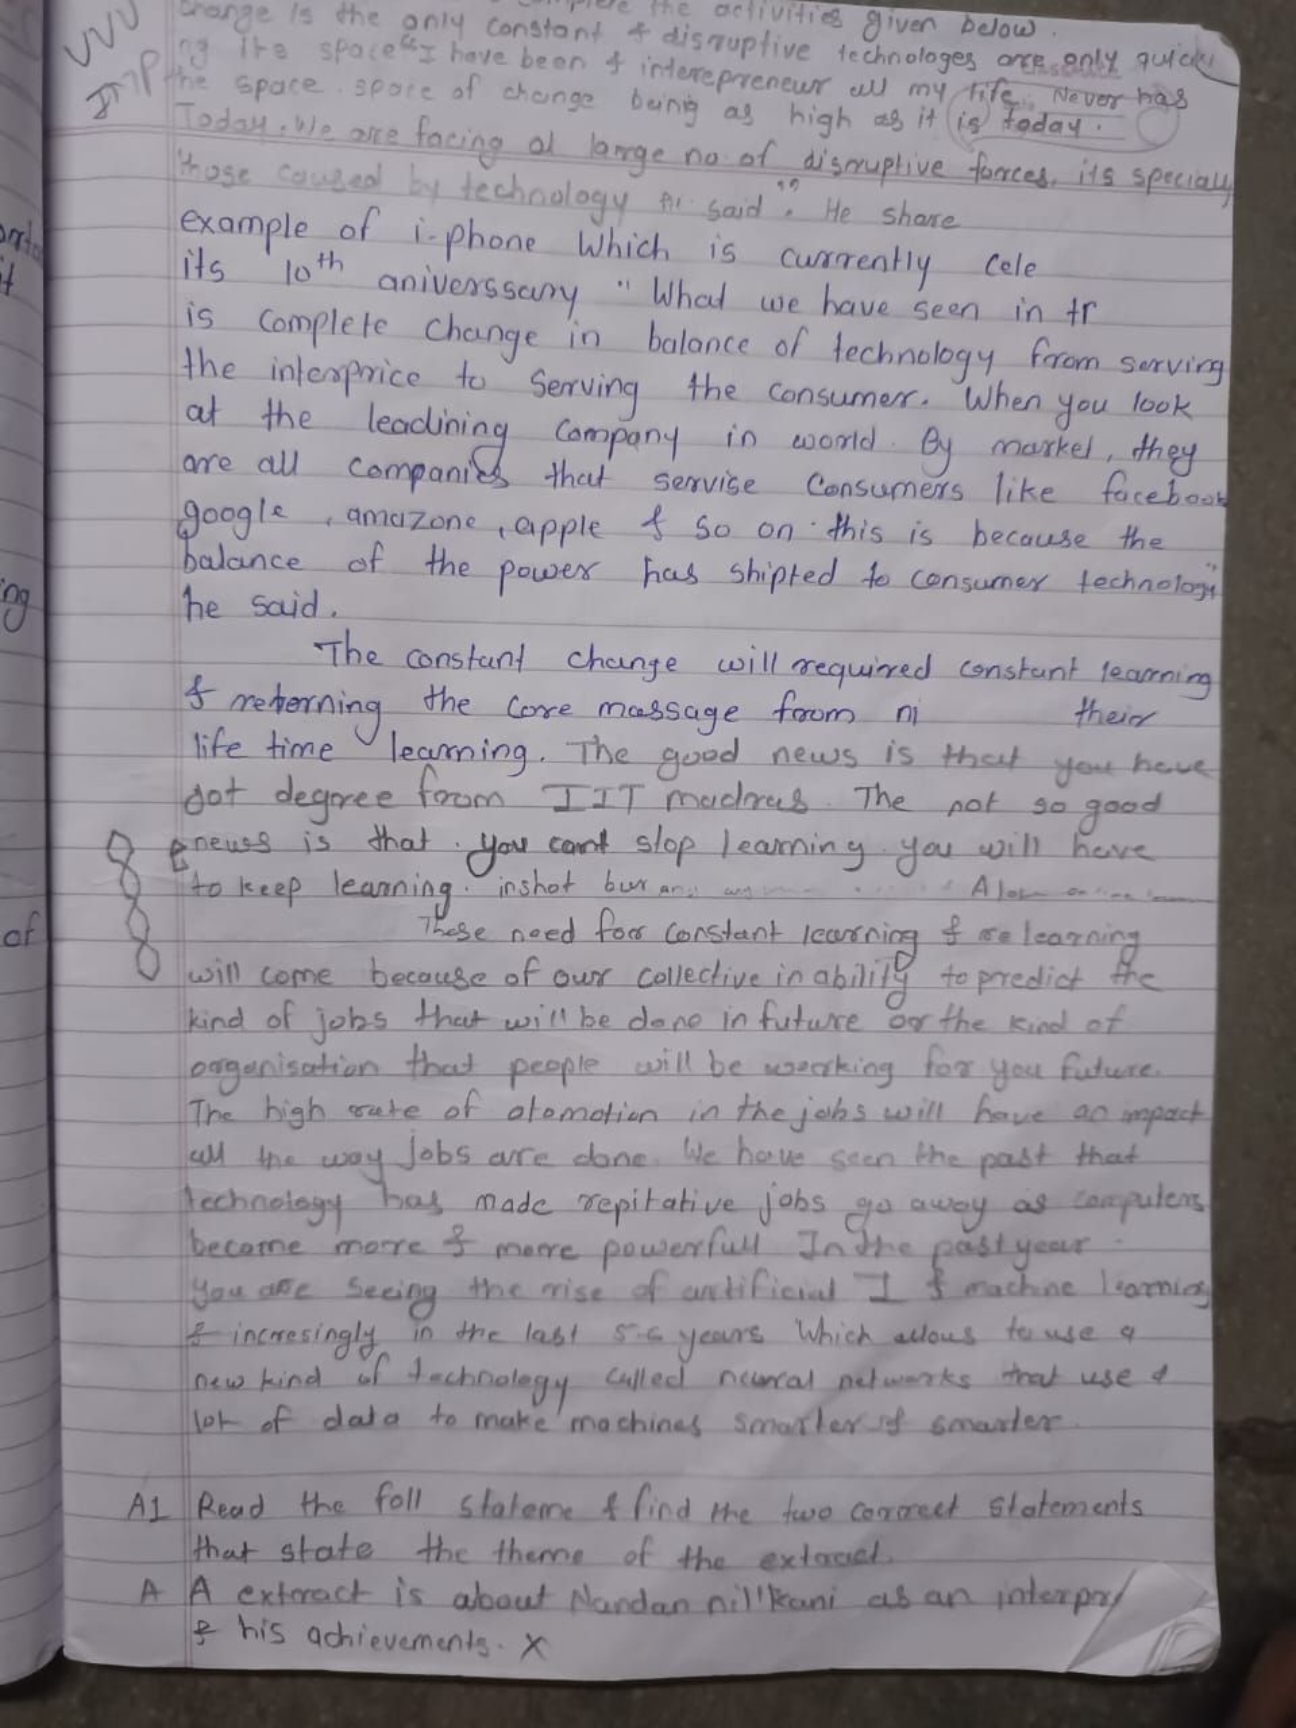 the activities given below.
change is the only constant & disruptive technologes are only quick
ng its space "I have been & interepreneur all my life. Never has
the space. space of change being as high as it is today.
Today. We are facing al large no. of disruptive forces, its specially
those caused by technology said". He share
example of i-phone Which is currently Cele
its 10th aniverssary " What we have seen in tr
is complete change in balance of technology from serving
the interprice to Serving the consumer. When you look
at the leadining company in world. By market, they
are all companies that servise Consumers like facebook
google, amazone, apple & so on. this is because the
balance of the power has shipted to consumer technology"
he said.
The constant change will required constant learning
& reterning the core massage from ni their
life time learning. The good news is that you have
got degree from IIT madras. The not so good
news is that. you cant stop learning. you will have
to keep learning. inshot
These need for constant learning & relearning
will come because of our collective in ability to predict the
kind of jobs that will be done in future or the kind of
organisation that people will be working for you future.
The high rate of atomotion in the jobs will have an impact
all the way jobs are done. We have seen the past that
technology has made repitative jobs go away as computers
become more & more powerfull In the past year.
you are seeing the rise of artificial I & machine learning
& incresingly in the last 5-6 years Which allous to use a
new kind of technology called neural networks that use a
lot of data to make machines smarter & smarter.
A1 Read the foll stateme & find the two correct statements
that state the theme of the extract.
A A extract is about Nandan nil'kani as an interpr
& his achievements. X